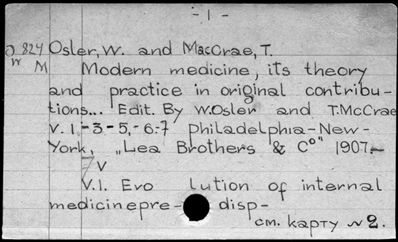 - 1 -
824 Osler, W. and MacCrae, T.
W M Modern medicine, its theory
and practice in original contribu-
tions... Edit. By W.Osler and T.McCrae
V. 1.-3-5,-6-7 philadelphia-New-
York, „Lea Brothers & C°" 1907.-
7 V
V.1. Evo lution of internal
medicine pre- disp-
см. карту № 2.